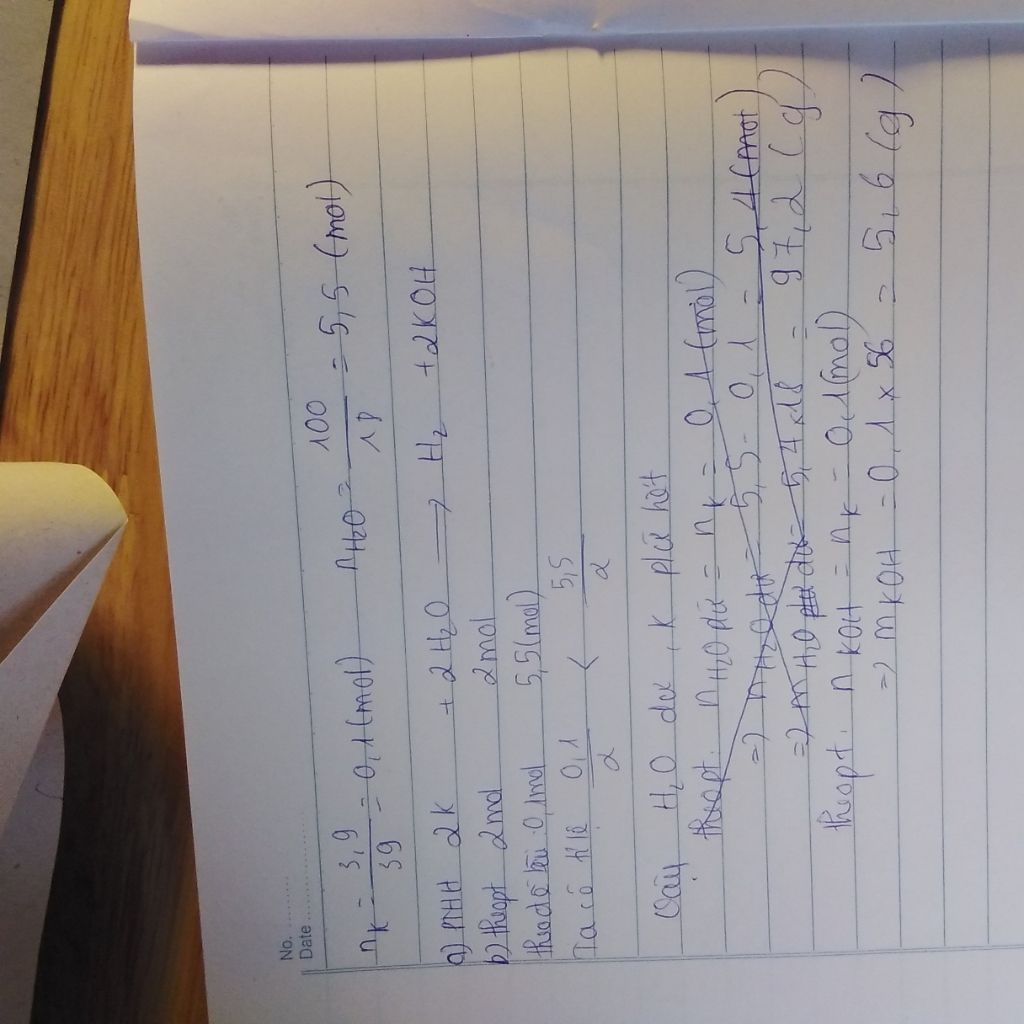 No. ............
Date ............
nK = 3,9 / 39 = 0,1 (mol) nH2O = 100 / 18 = 5,5 (mol)
a) PTHH 2K + 2H2O → H2 + 2KOH
b) theopt 2mol 2mol
theođề bài: 0,1mol 5,5(mol)
Ta có tỉ lệ 0,1 / 2 < 5,5 / 2
Vậy H2O dư, K pứ hết
theopt. nH2O pứ = nK = 0,1 (mol)
=> nH2O dư = 5,5 - 0,1 = 5,4 (mol)
=> mH2O dư = 5,4 x 18 = 97,2 (g)
theopt. nKOH = nK = 0,1(mol)
=> mKOH = 0,1 x 56 = 5,6 (g)